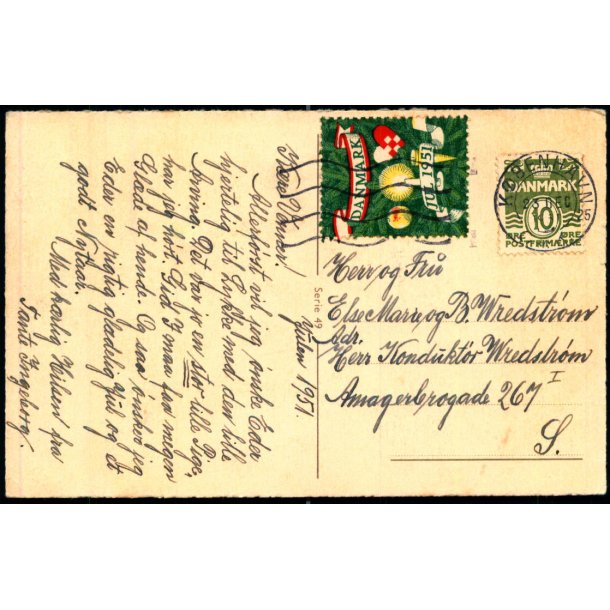 Julen 1951.
Kære Venner!
Allerførst vil jeg ønske Eder
hjertelig til Lykke med den lille
Arving. Det var jo en stor lille Pige,
har jeg hørt. Gid I maa faa megen
Glæd af hende. Og saa ønsker jeg
Eder en rigtig glædelig Jul og et
godt Nytaar.
Med kærlig Hilsen fra
Tante Ingeborg.
Serie 49
DANMARK
JUL 1951
KØBENHAVN
23 DEC
DANMARK
10
ØRE ØRE
POSTFRIMÆRKE
Herr og Frü
Else Marie og B. Wredstrøm
Adr.
Herr Konduktör Wredstrøm
Amagerbrogade 267 I
S.